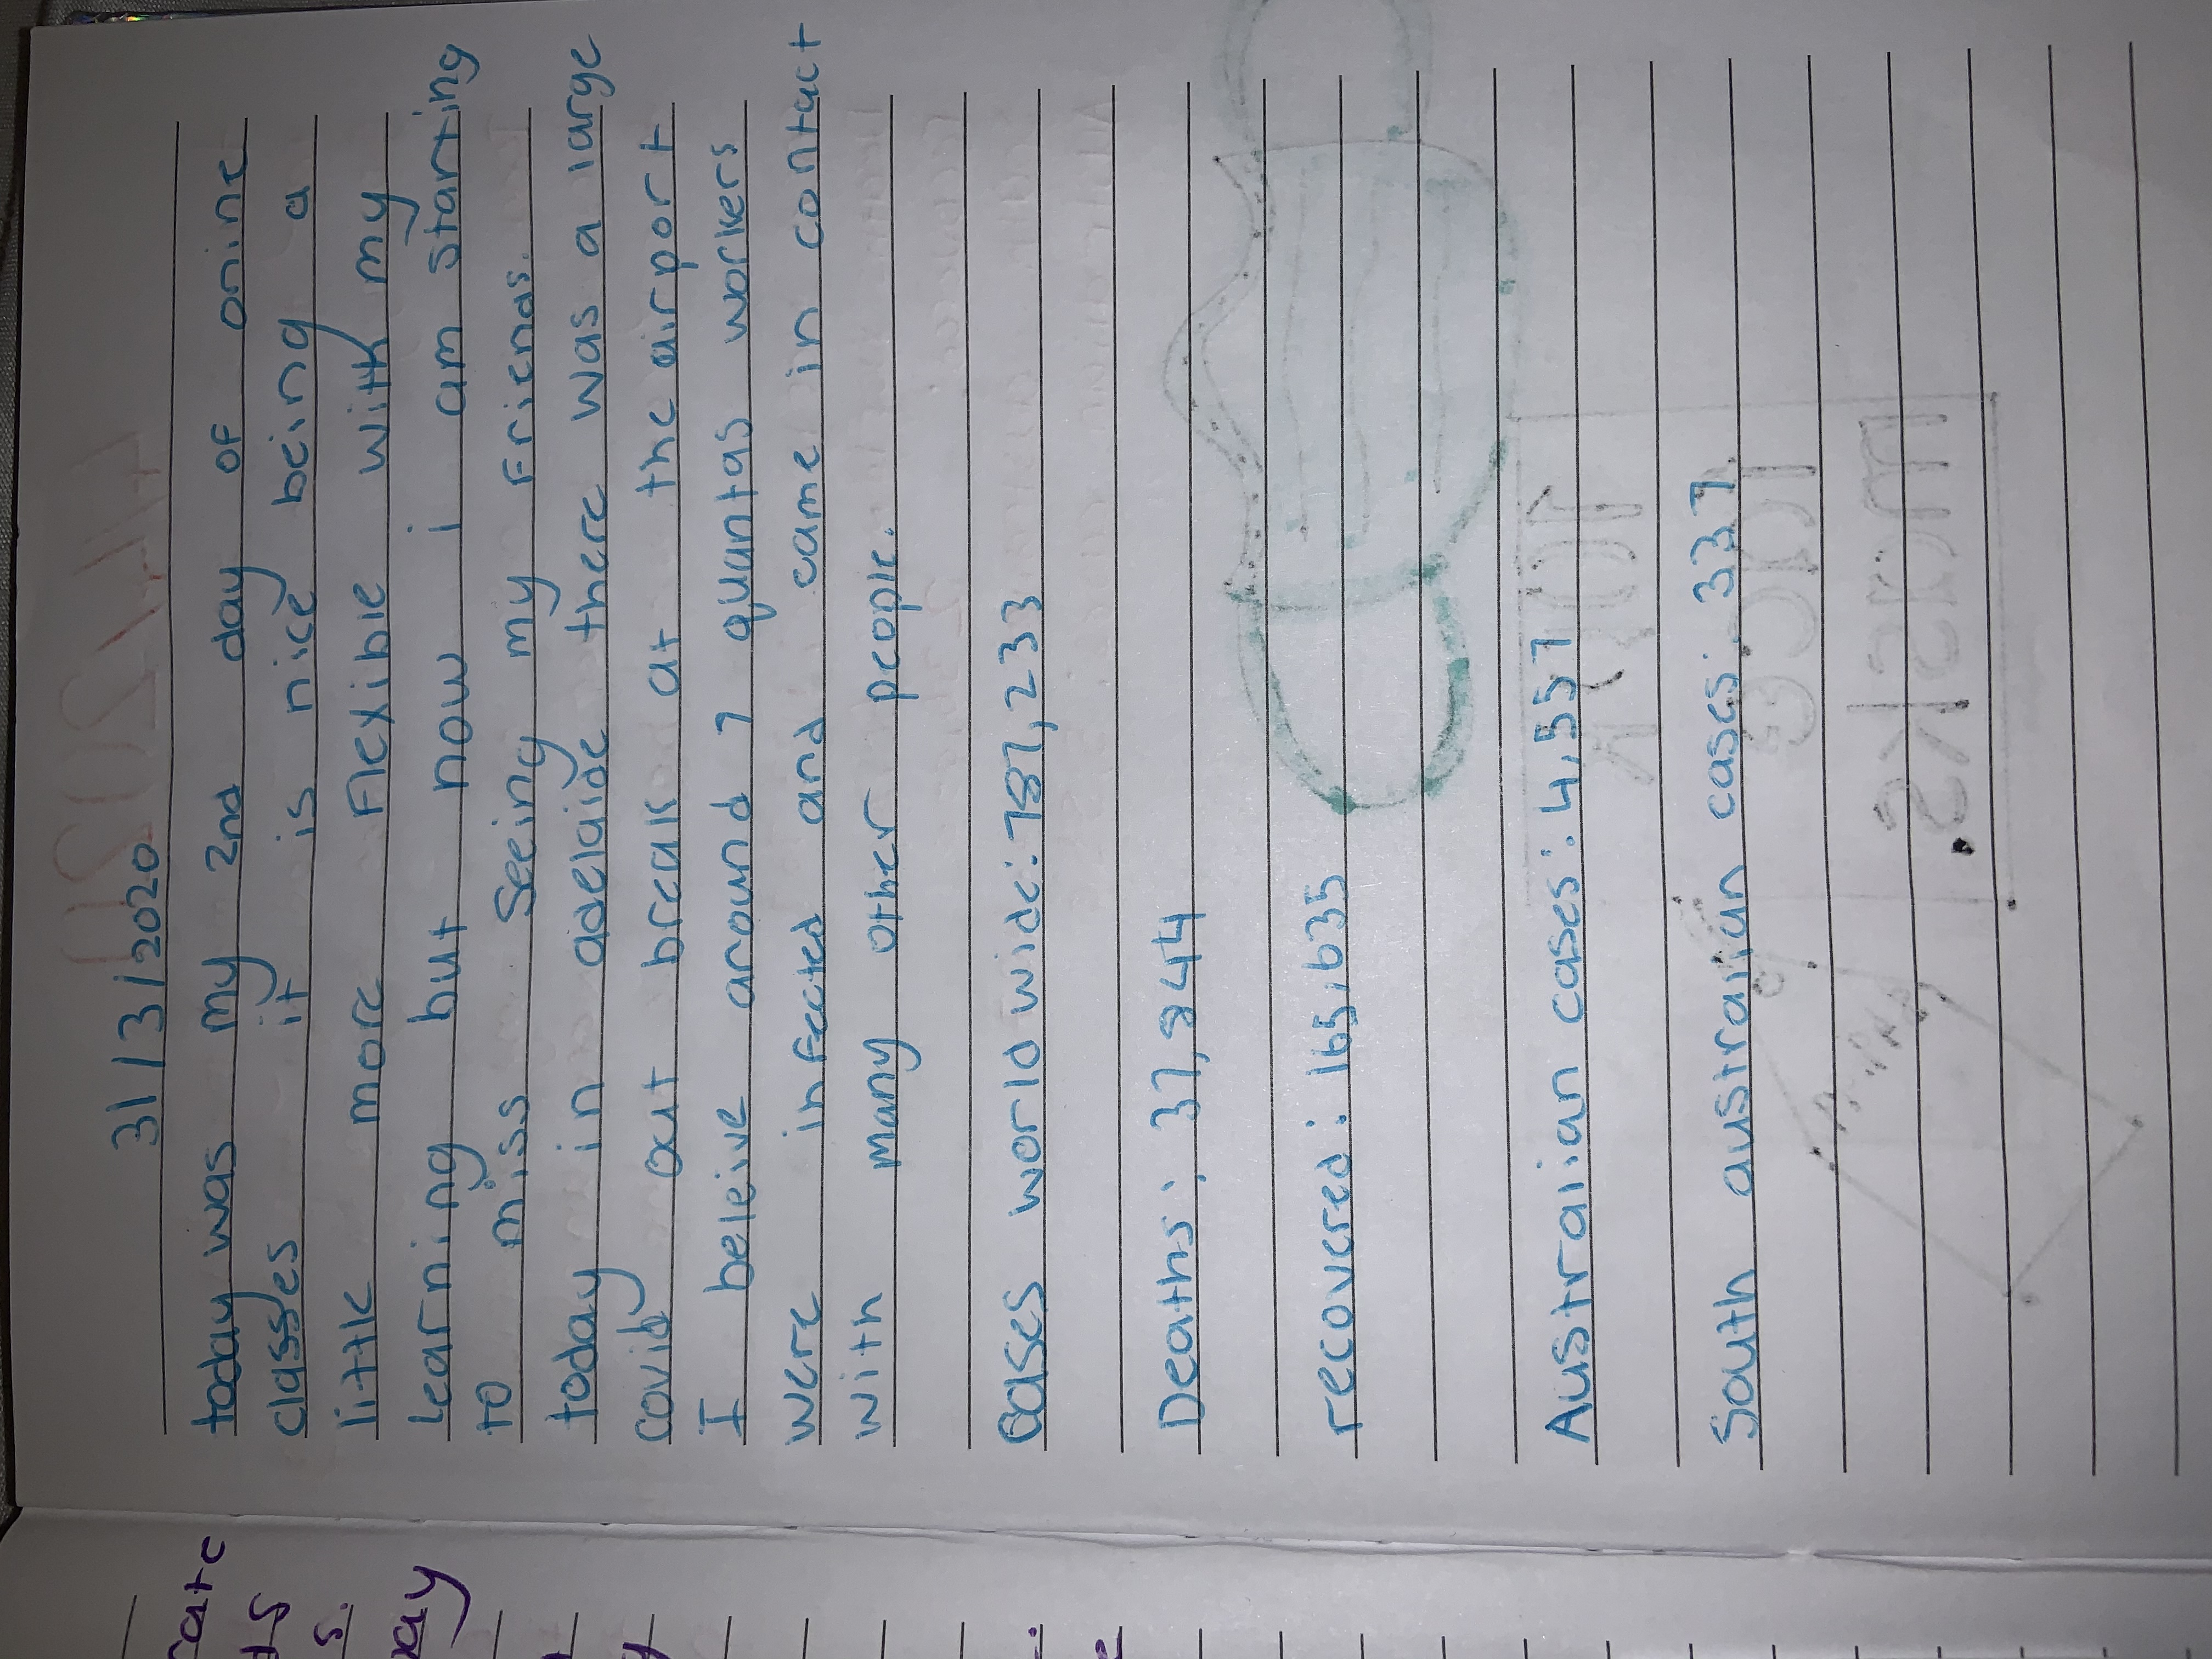 31/3/2020
today was my 2nd day of onine
classes it is nice being a
little more flexible with my
learning but now i am starting
to miss seeing my friends.
today in adelaide there was a large
covid out break at the airport
I beleive around 7 quantas workers
were infected and came in contact
with many other people.
Cases world wide: 787,233
Deaths: 37,844
recovered: 165,635
Austrailian cases: 4,557
South austrailian cases: 337